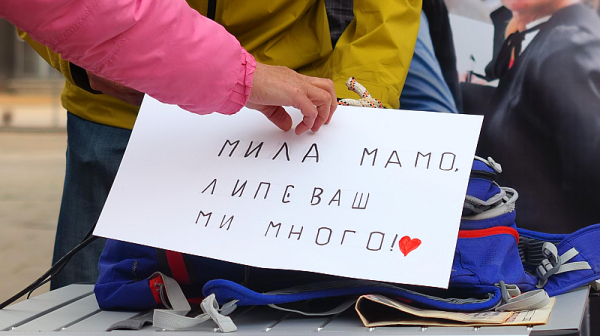 МИЛА МАМО,
ЛИПСВАШ
МИ МНОГО!❤